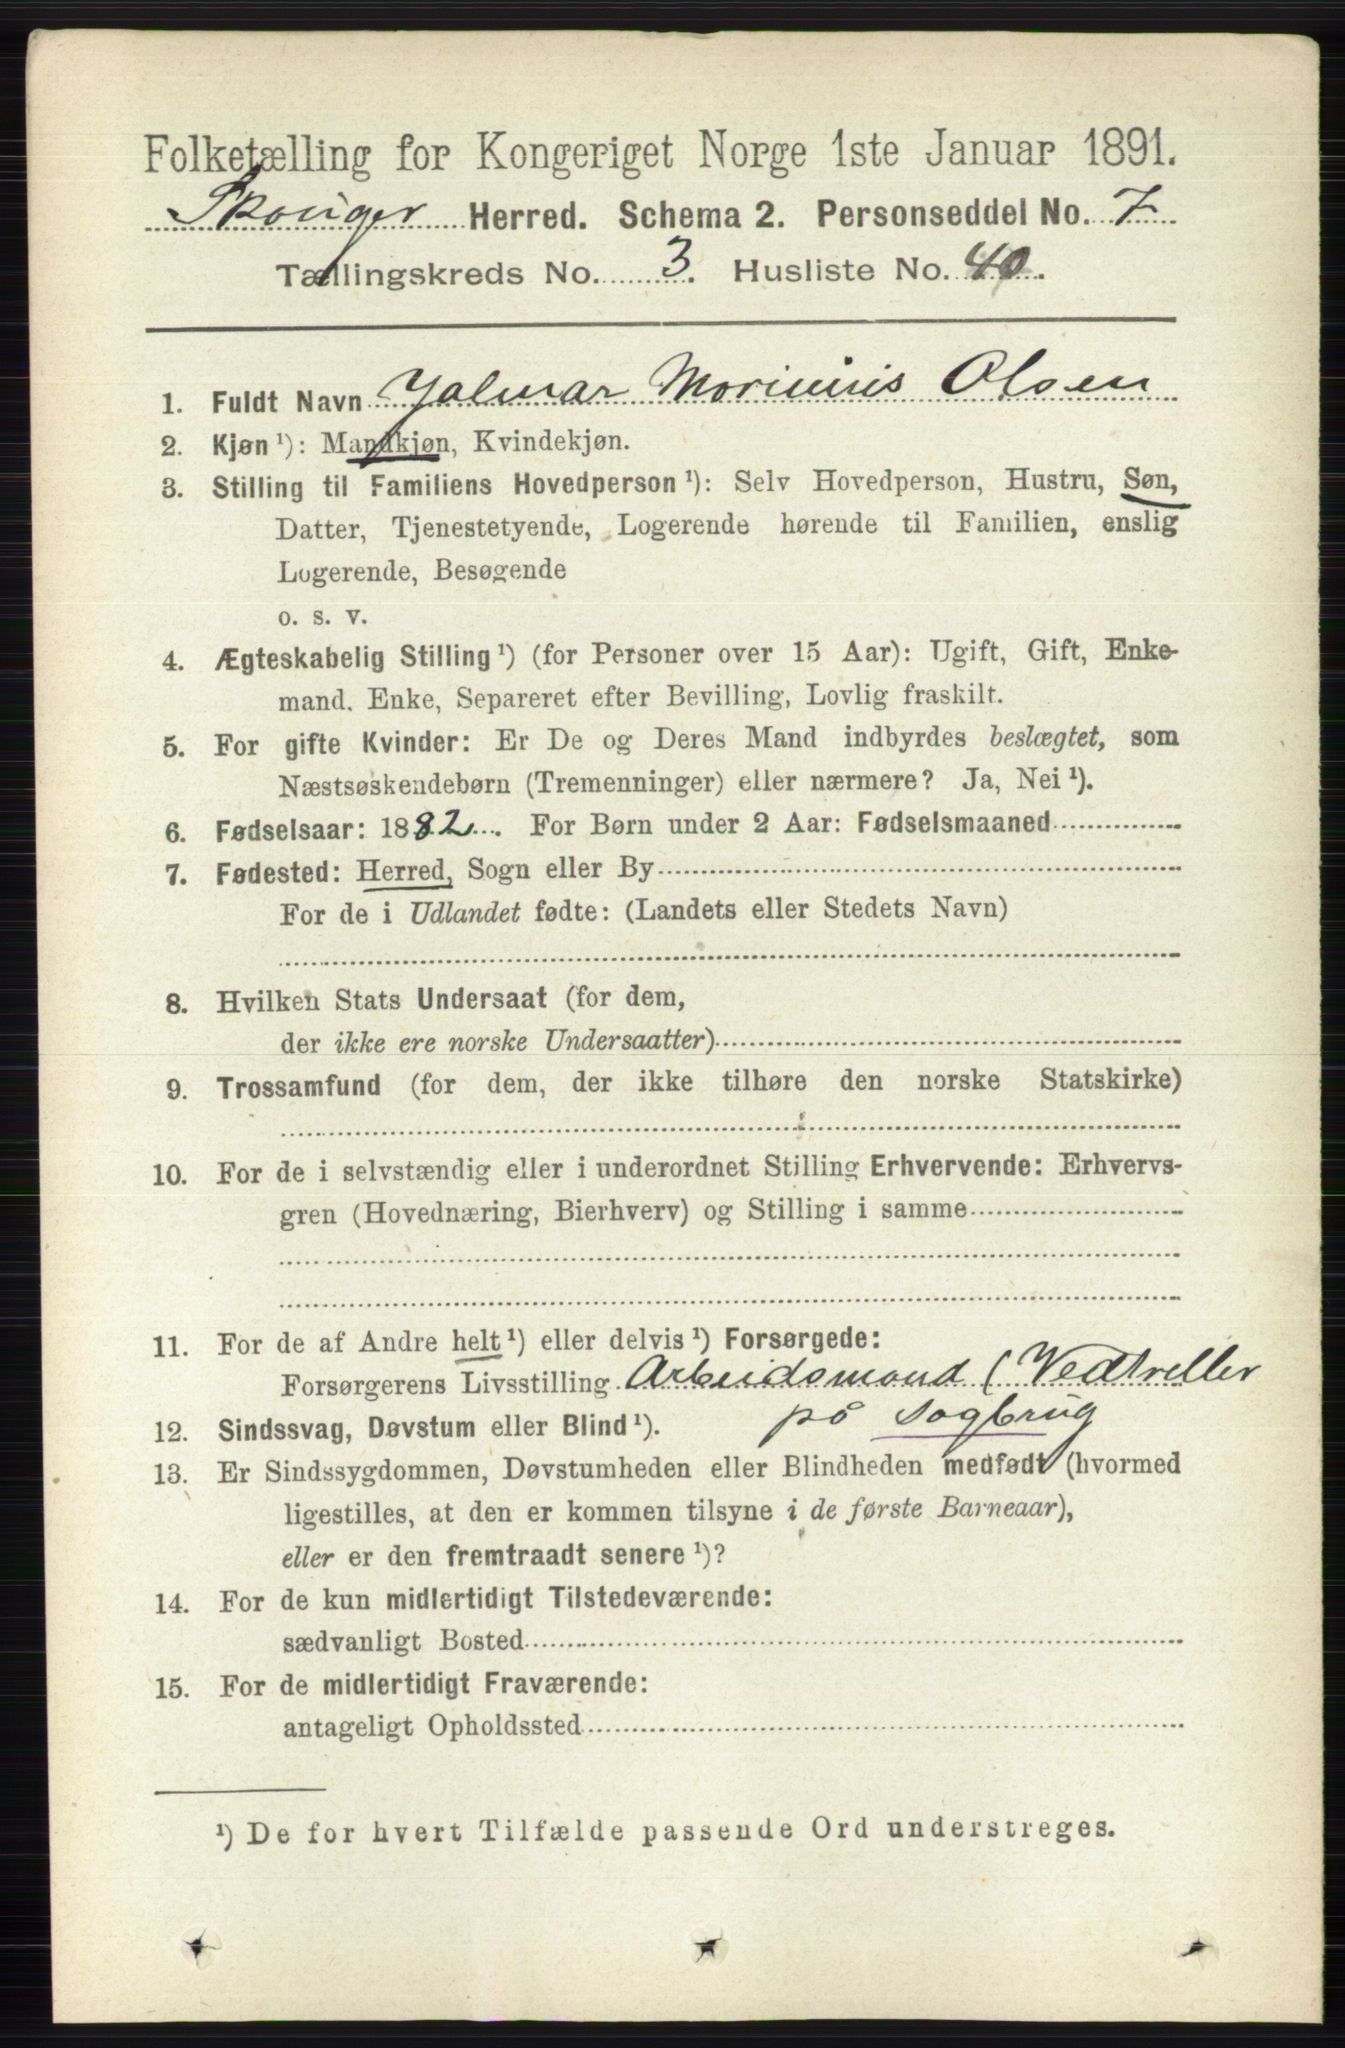 Folketælling for Kongeriget Norge 1ste Januar 1891.
Skouger Herred. Schema 2. Personseddel No. 7
Tællingskreds No. 3. Husliste No. 40.
1. Fuldt Navn Hjalmar Olsen
2. Kjøn ¹): Mandkjøn, Kvindekjøn.
3. Stilling til Familiens Hovedperson ¹): Selv Hovedperson, Hustru, Søn,
Datter, Tjenestetyende, Logerende hørende til Familien, enslig
Logerende, Besøgende
o. s. v.
4. Ægteskabelig Stilling ¹) (for Personer over 15 Aar): Ugift, Gift, Enke-
mand, Enke, Separeret efter Bevilling, Lovlig fraskilt.
5. For gifte Kvinder: Er De og Deres Mand indbyrdes beslægtet, som
Næstsøskendebørn (Tremenninger) eller nærmere? Ja, Nei ¹).
6. Fødselsaar: 1882. For Børn under 2 Aar: Fødselsmaaned
7. Fødested: Herred, Sogn eller By
For de i Udlandet fødte: (Landets eller Stedets Navn)
8. Hvilken Stats Undersaat (for dem,
der ikke ere norske Undersaatter)
9. Trossamfund (for dem, der ikke tilhøre den norske Statskirke)
10. For de i selvstændig eller i underordnet Stilling Erhvervende: Erhvervs-
gren (Hovednæring, Bierhverv) og Stilling i samme
11. For de af Andre helt ¹) eller delvis ¹) Forsørgede:
Forsørgerens Livsstilling Arbeidsmand (Vedtreller
på sagbrug
12. Sindssvag, Døvstum eller Blind ¹).
13. Er Sindssygdommen, Døvstumheden eller Blindheden medfødt (hvormed
ligestilles, at den er kommen tilsyne i de første Barneaar),
eller er den fremtraadt senere ¹)?
14. For de kun midlertidigt Tilstedeværende:
sædvanligt Bosted
15. For de midlertidigt Fraværende:
antageligt Opholdssted
¹) De for hvert Tilfælde passende Ord understreges.